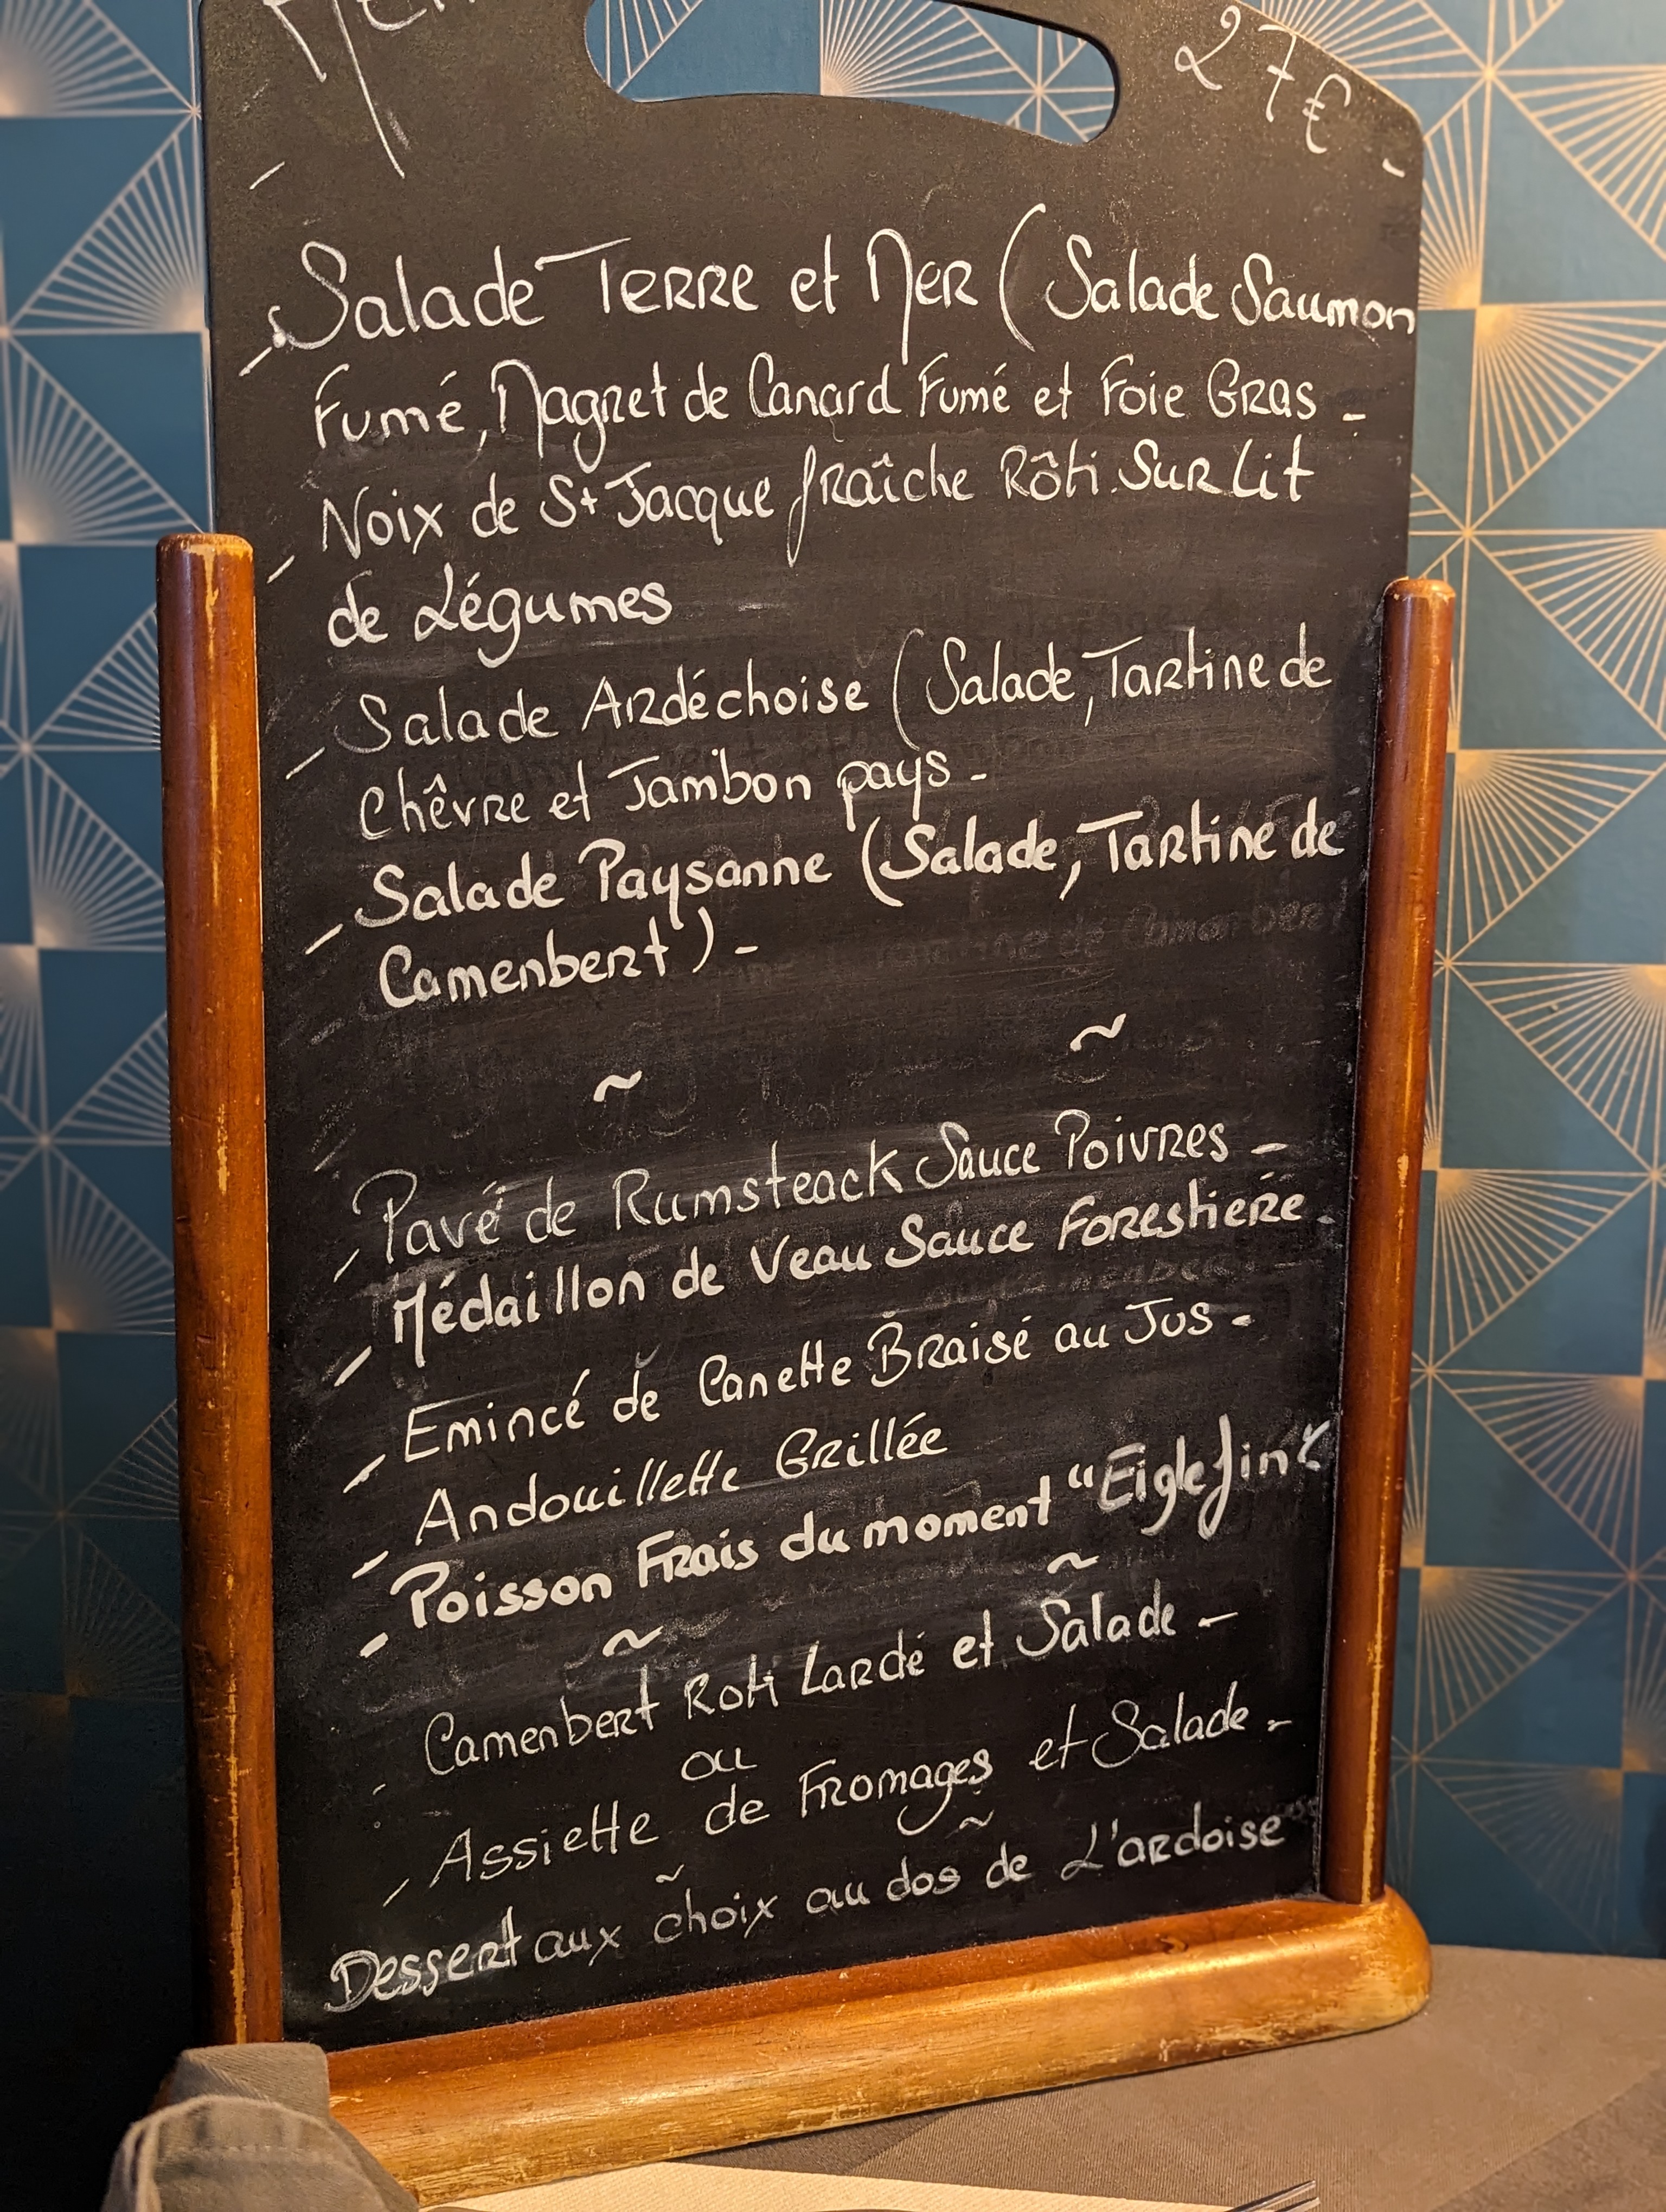 27€ -
- Salade Terre et Mer ( Salade Saumon
Fumé, Magret de Canard Fumé et Foie Gras -
- Noix de St Jacque fraîche Rôti Sur Lit
de Légumes
- Salade Ardéchoise ( Salade, Tartine de
Chêvre et Jambon pays -
- Salade Paysanne (Salade, Tartine de
Camenbert) -
~ ~
- Pavé de Rumsteack Sauce Poivres -
- Médaillon de Veau Sauce Forestière -
- Emincé de Canette Braisé au Jus -
- Andouillette Grillée
- Poisson Frais du moment "Eiglefin"
~ ~
- Camenbert Roti Lardé et Salade -
ou
- Assiette de Fromages et Salade -
~ ~
Dessert aux choix au dos de L'ardoise